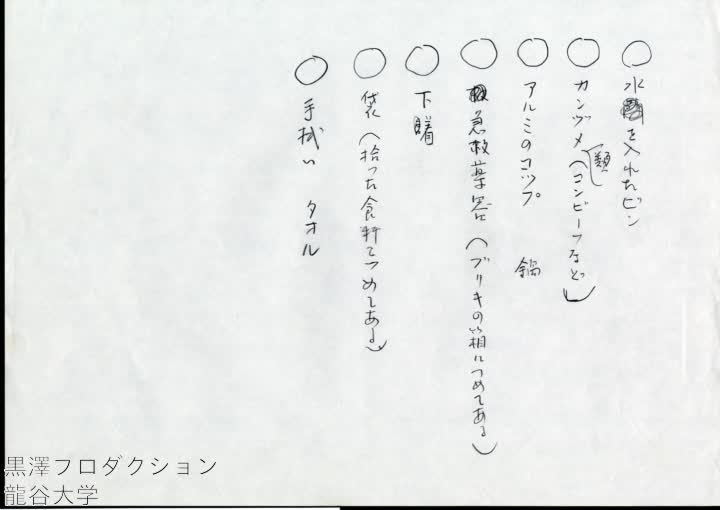 ○ 水を入れたビン
○ カンヅメ類(コンビーフなど)
○ アルミのコップ 鍋
○ 急救薬容(ブリキの箱につめてある)
○ 下着
○ 袋(拾った食料てつめてある)
○ 手拭い タオル
黒澤フロダクション
龍谷大学